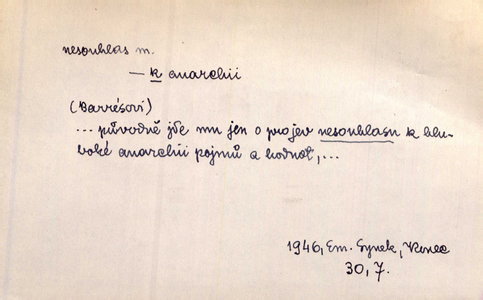 nesouhlas m.
— k anarchii
(Barrèsovi)
... původně jde mu jen o projev nesouhlasu k hlu-
boké anarchii pojmů a hodnot, ...
1946, Em. Synek, Konec
30, 7.